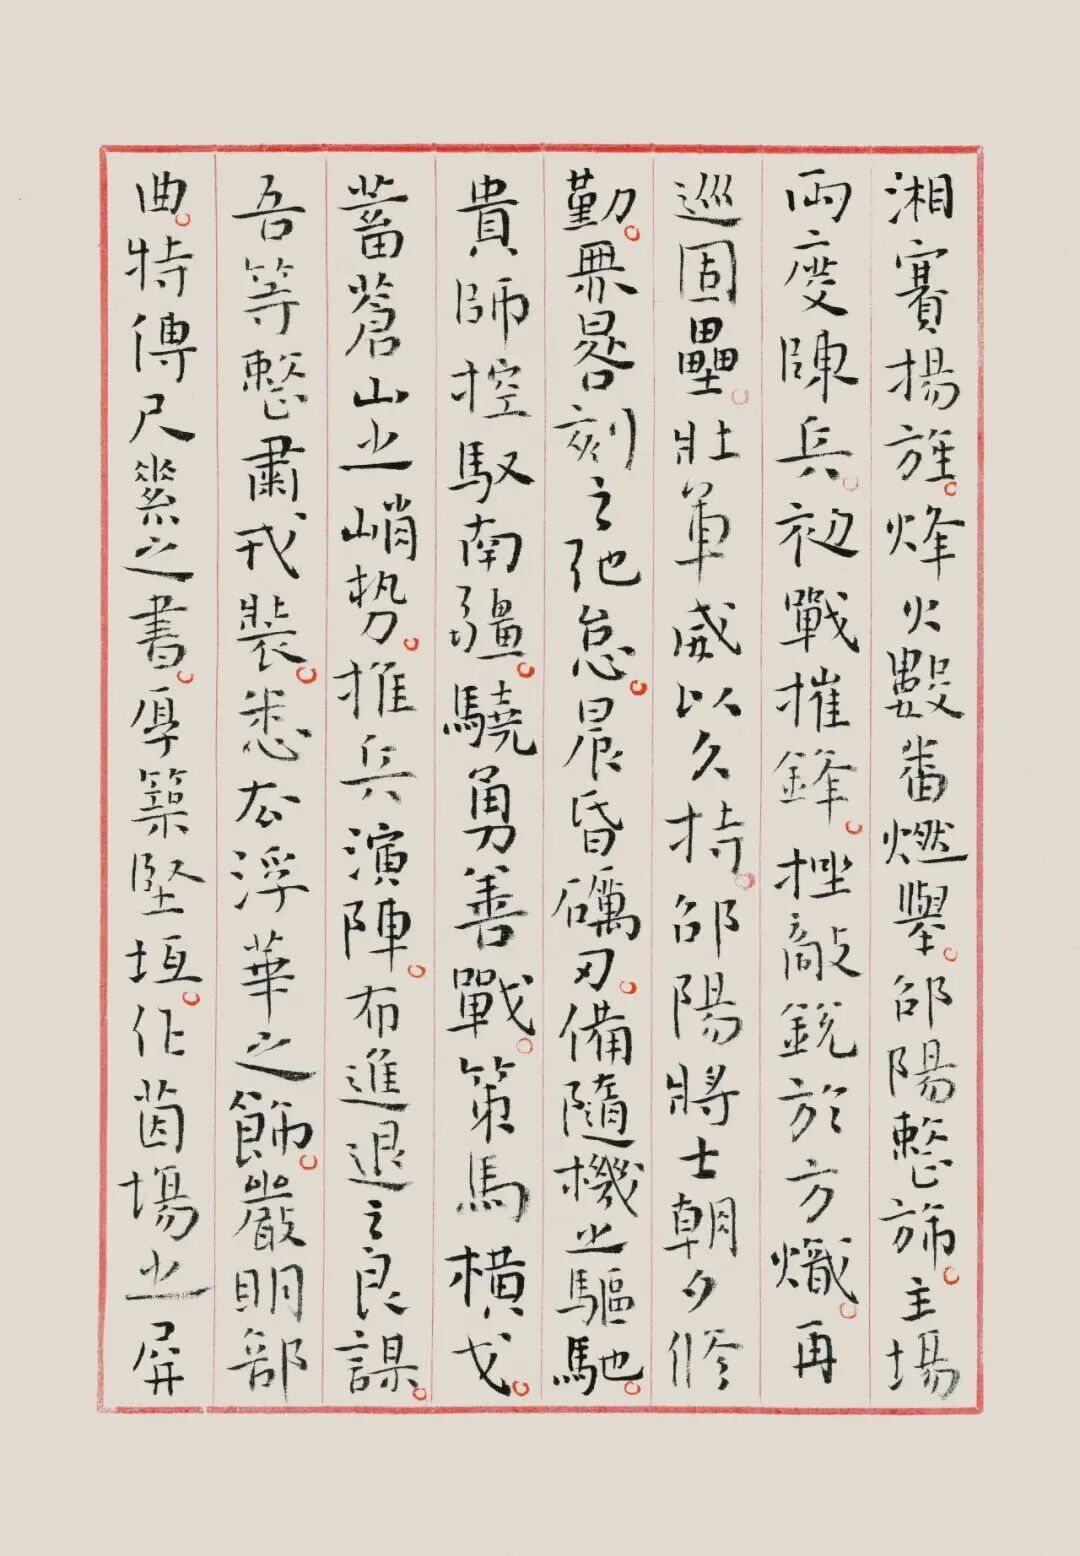 湘賽揚旌。烽火數番燃舉。邵陽整旆。主場
兩度陳兵。初戰摧鋒。挫敵銳於方熾。再
巡固壘。壯軍威以久持。邵陽將士朝夕修
勤。毋晷刻之弛怠。晨昏礪刃。備隨機之驅馳。
貴師控馭南疆。驍勇善戰。策馬橫戈。
蓄蒼山之峭勢。推兵演陣。布進退之良謀。
吾等整肅戎裝。悉去浮華之飾。嚴明部
曲。特傳尺素之書。厚築堅垣。作茵場之屏